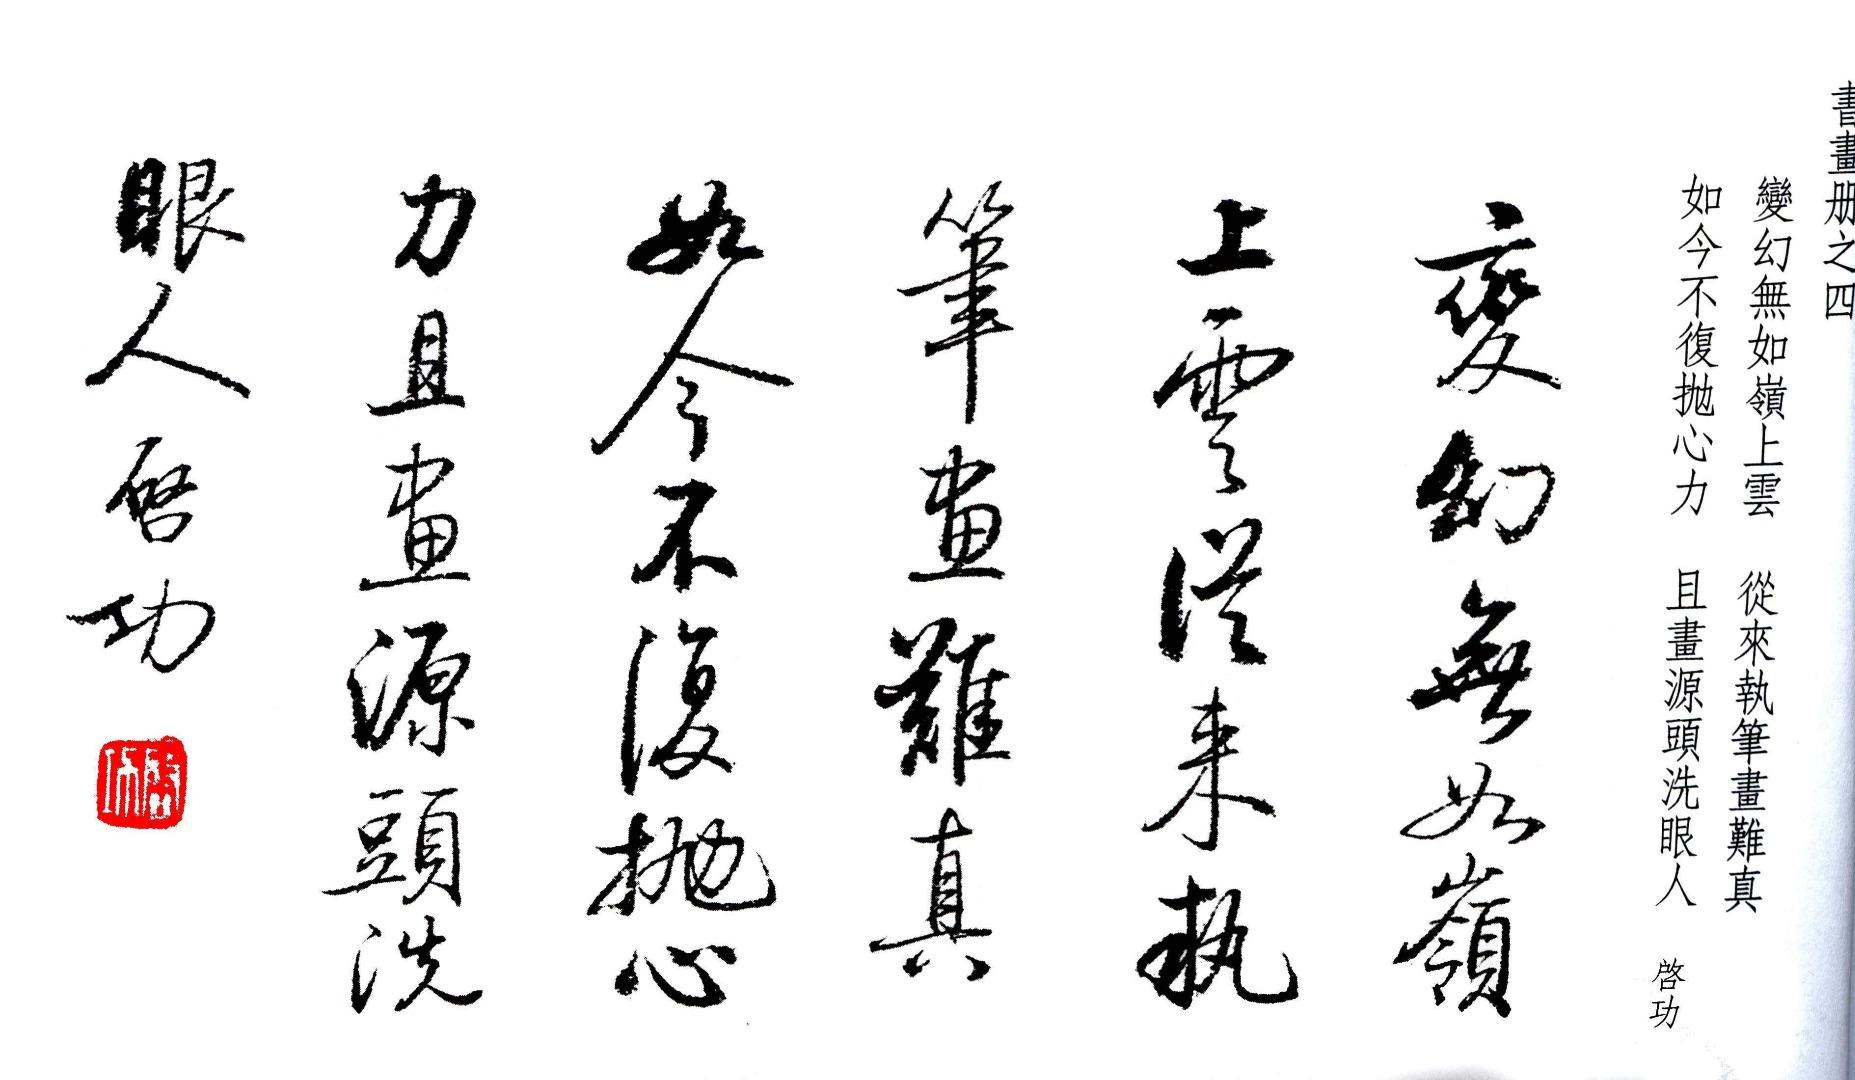 書畫册之四
變幻無如嶺上雲　從來執筆畫難真
如今不復拋心力　且畫源頭洗眼人　啓功
變幻無如嶺
上雲從来執
筆畫難真
如今不復拋心
力且畫源頭洗
眼人 啓功